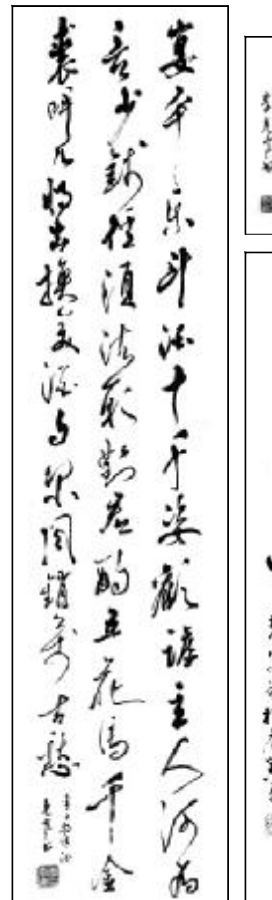 宴平乐斗酒十千恣歡謔主人何为
言少錢徑須沽取對君酌五花馬千金
裘呼儿将出換美酒与尔同銷萬古愁